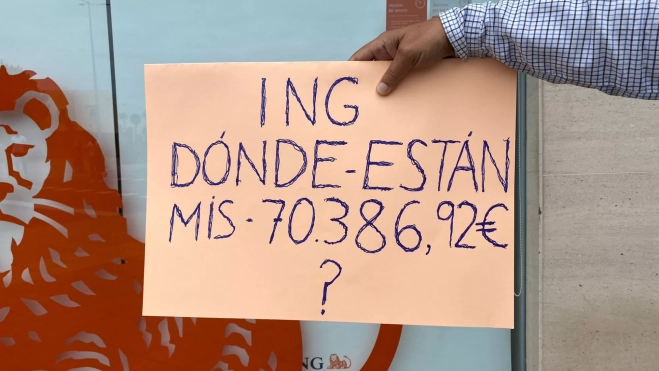 ING
DÓNDE-ESTÁN
MIS·70.386,92€
?
NG